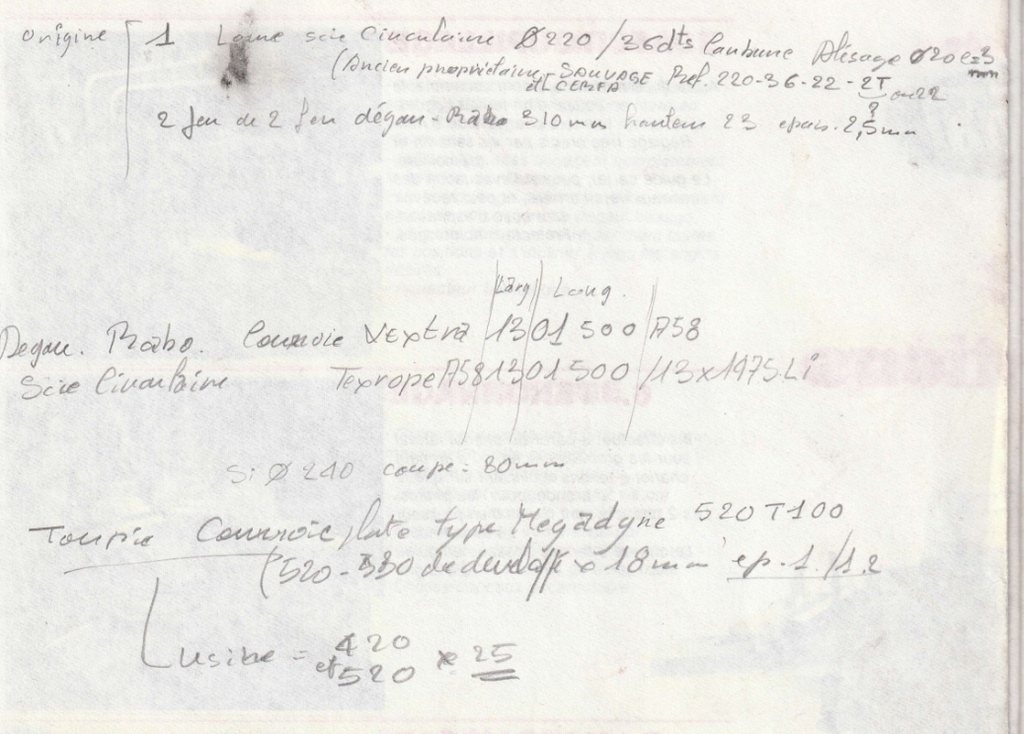 origine 1 Lame scie Circulaire Ø220 / 36dts Carbure Alésage Ø20 e=3 mm
(Ancien propriétaire SAUVAGE Ref. 220-36-22-2T ou 22
et LCERFA ?
2 Jeu de 2 fers dégau-Rabo 310 mm hauteur 23 epais. 2,5 mm
Larg Long.
Degau. Rabo. Courroie VExtra 13 01 500 A58
Scie Circulaire Texrope A58 13 01500 / 13x1475 Li
Si Ø 240 coupe = 80mm
Toupie Courroie plate type Megadyne 520 T100
(520-530 de develop x 18 mm ep. 1./1.2
usine = 420 et 520 x 25